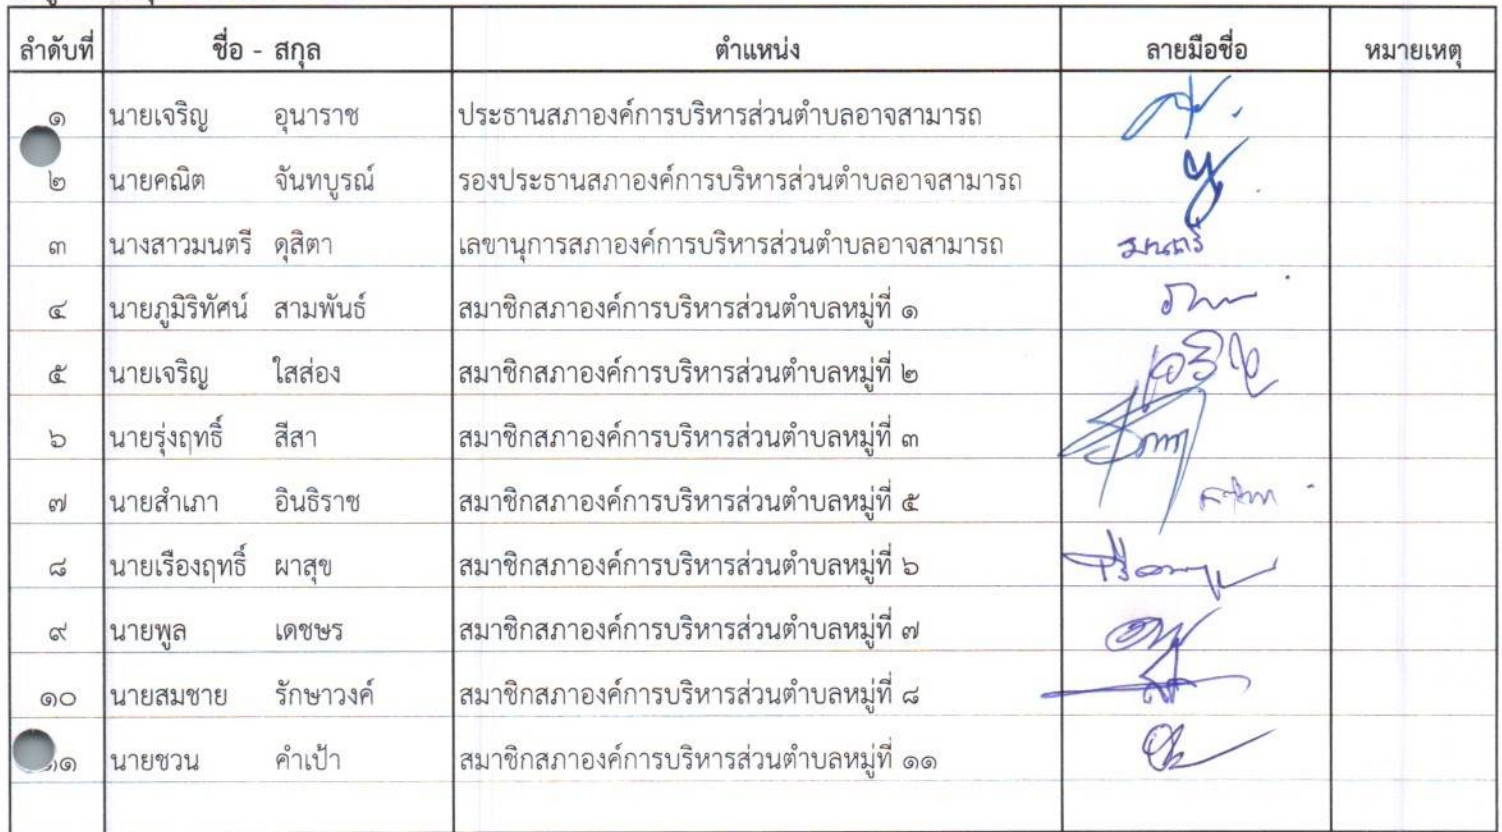 ลำดับที่ ชื่อ - สกุล ตำแหน่ง ลายมือชื่อ หมายเหตุ
๑ นายเจริญ อุนาราช ประธานสภาองค์การบริหารส่วนตำบลอาจสามารถ
๒ นายคณิต จันทบูรณ์ รองประธานสภาองค์การบริหารส่วนตำบลอาจสามารถ
๓ นางสาวมนตรี ดุสิตา เลขานุการสภาองค์การบริหารส่วนตำบลอาจสามารถ มนตรี
๔ นายภูมิริทัศน์ สามพันธ์ สมาชิกสภาองค์การบริหารส่วนตำบลหมู่ที่ ๑
๕ นายเจริญ ใสส่อง สมาชิกสภาองค์การบริหารส่วนตำบลหมู่ที่ ๒
๖ นายรุ่งฤทธิ์ สีสา สมาชิกสภาองค์การบริหารส่วนตำบลหมู่ที่ ๓
๗ นายสำเภา อินธิราช สมาชิกสภาองค์การบริหารส่วนตำบลหมู่ที่ ๕
๘ นายเรืองฤทธิ์ ผาสุข สมาชิกสภาองค์การบริหารส่วนตำบลหมู่ที่ ๖
๙ นายพูล เดชษร สมาชิกสภาองค์การบริหารส่วนตำบลหมู่ที่ ๗
๑๐ นายสมชาย รักษาวงค์ สมาชิกสภาองค์การบริหารส่วนตำบลหมู่ที่ ๘
๑๑ นายชวน คำเป้า สมาชิกสภาองค์การบริหารส่วนตำบลหมู่ที่ ๑๑